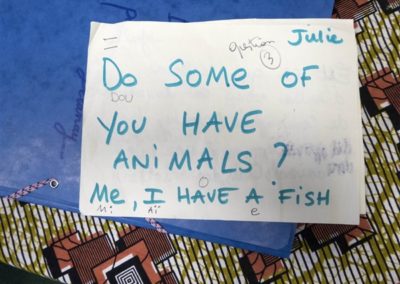 Julie
question
3
Do SOME OF
Dou
YOU HAVE
ANiMALS ?
Me, I HAVE A FISH
Mi Aï o e